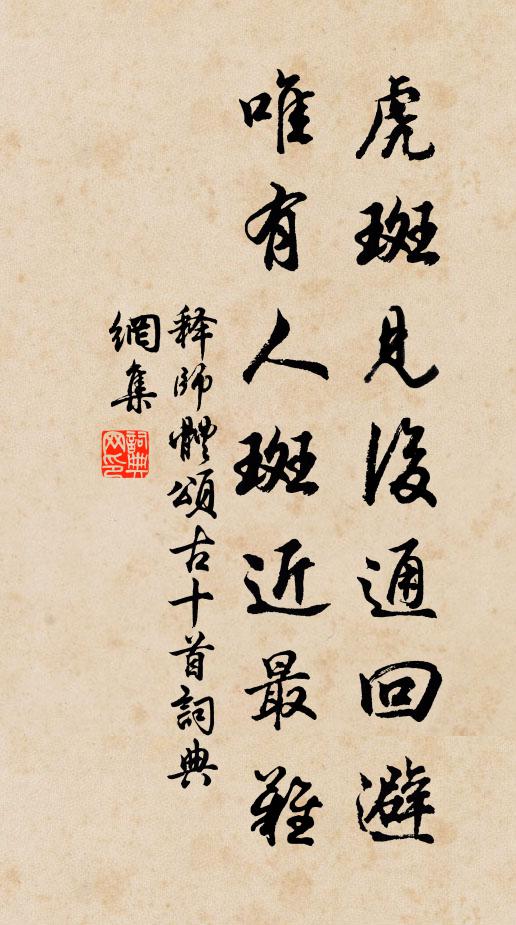 虎斑見後通回避
唯有人斑近最難
释師體頌古十首詞典
網集
詞典网印